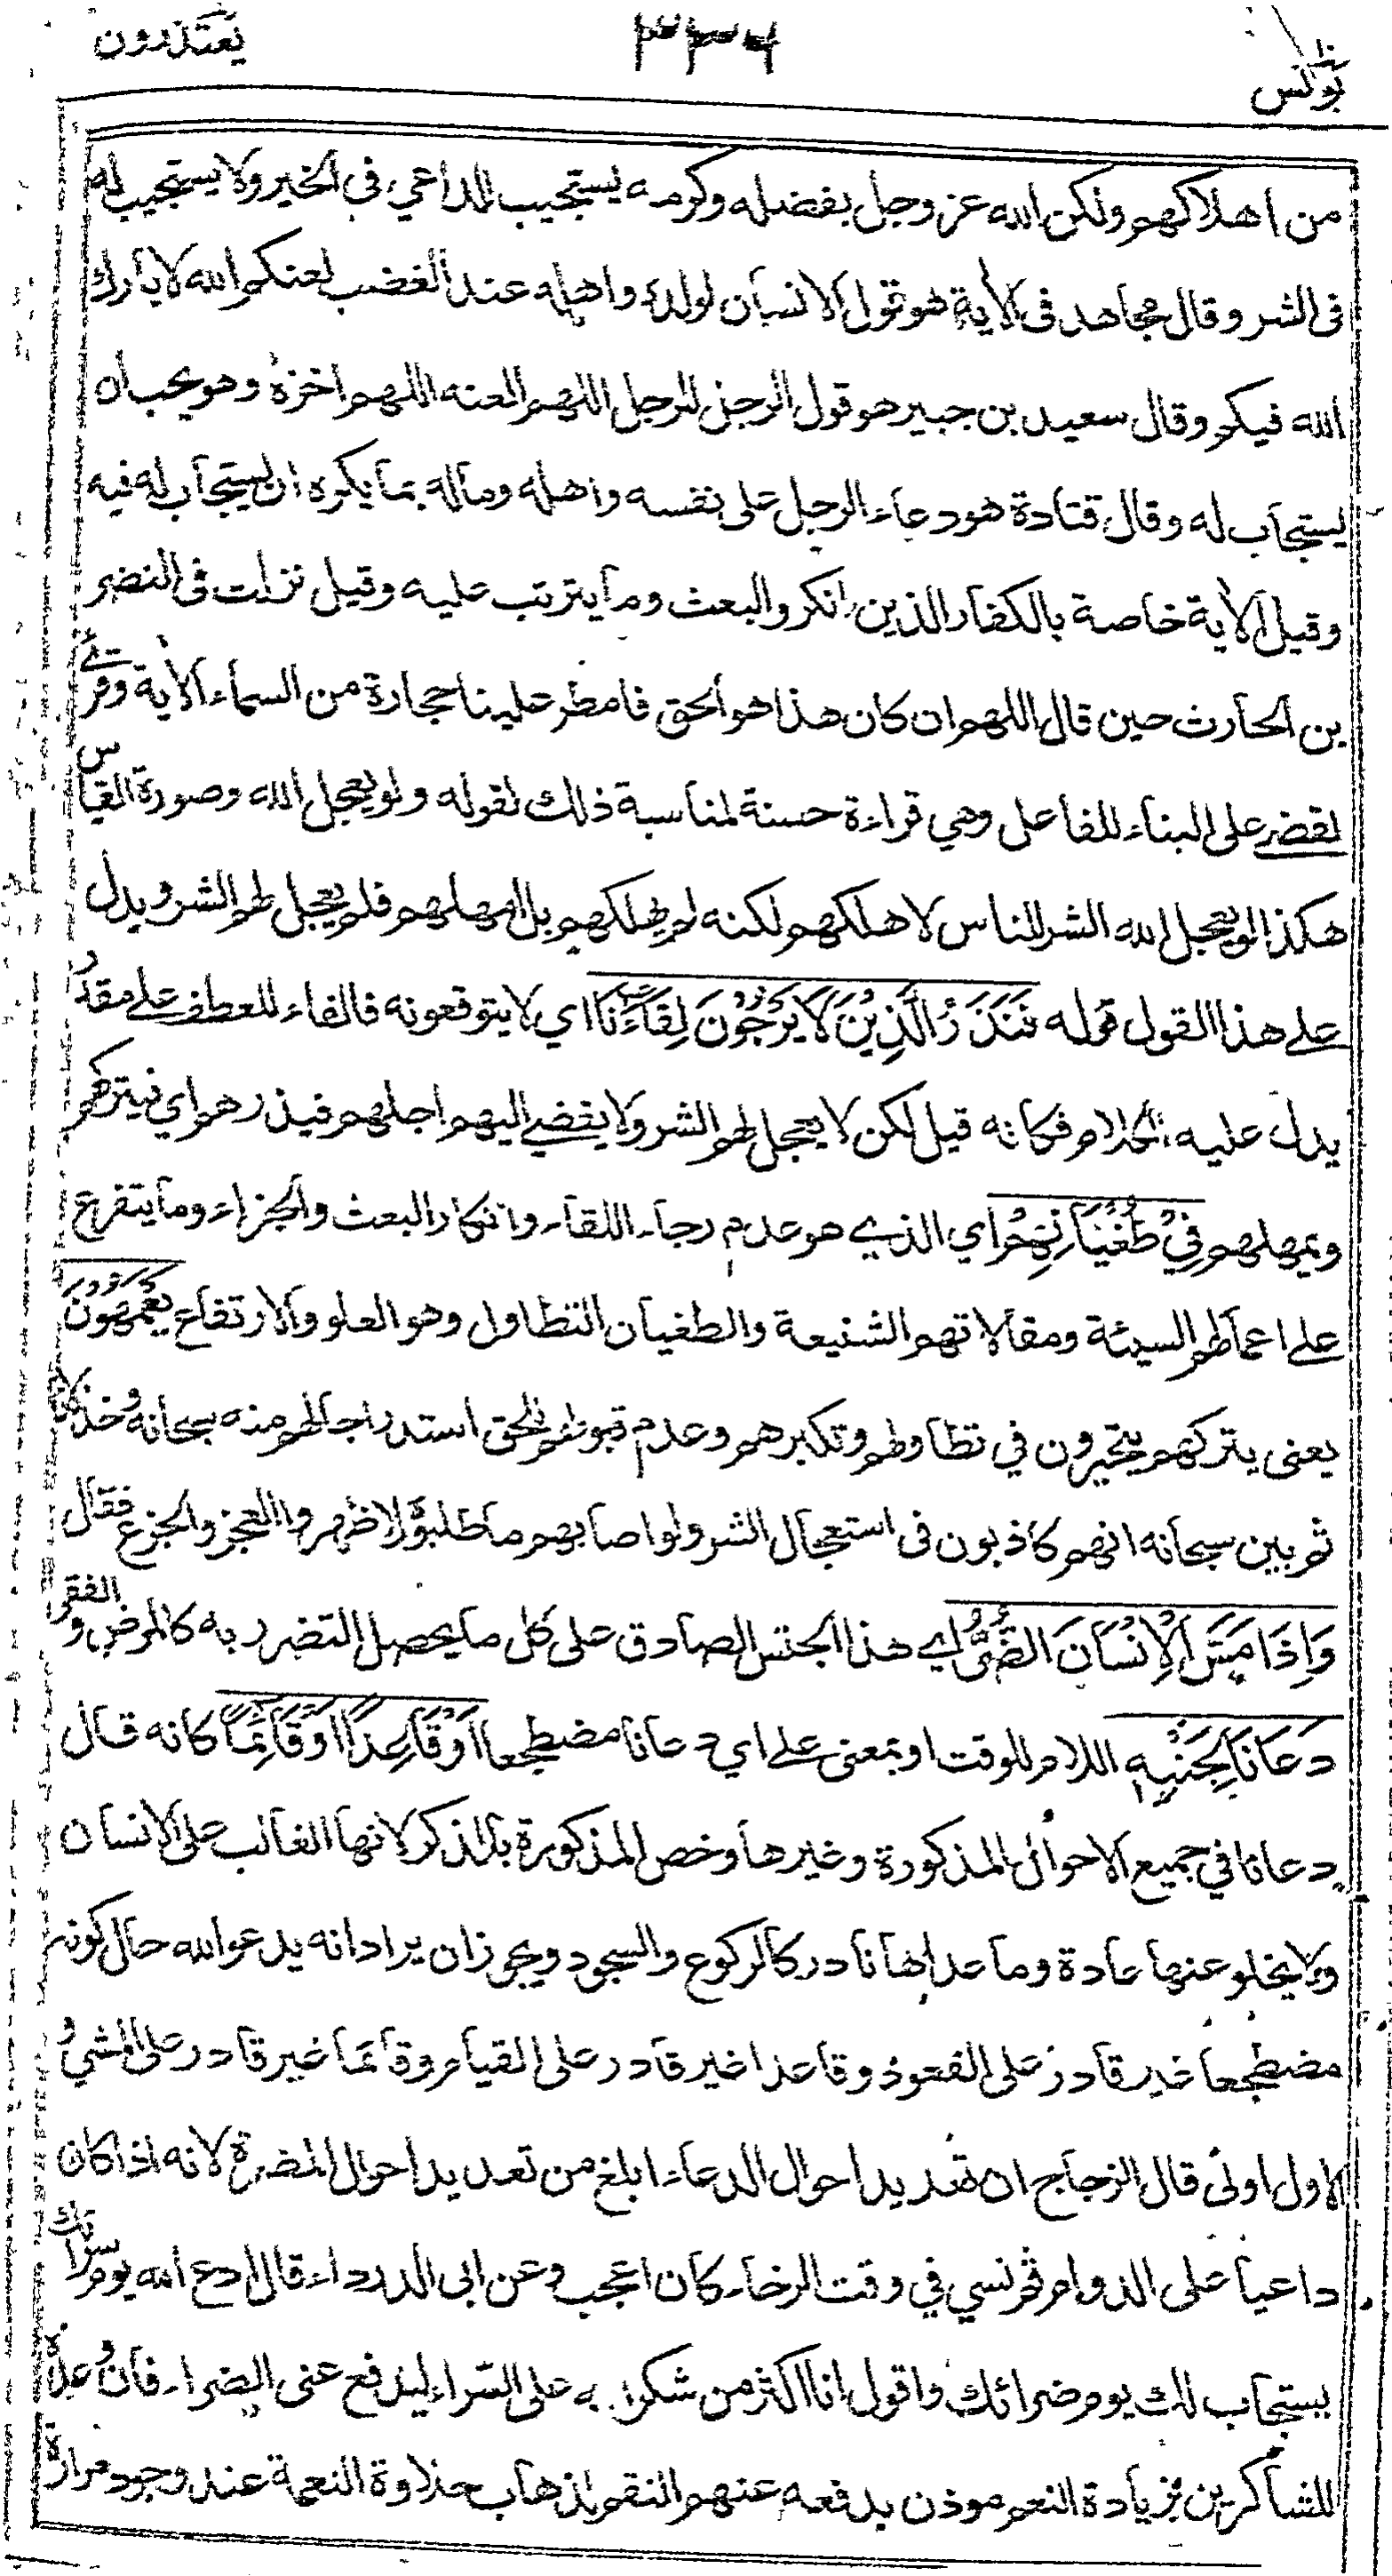 يونس ١٠
٣٣٦
يعتذرون
من اهلاكهم ولكن الله عز وجل بفضله وكرمه يستجيب للداعي في الخير ولا يستجيب له
فى الشر وقال مجاهد فى الأية هو قول الانسان لولده واهله عند الغضب لعنكم الله لا بارك
الله فيكم وقال سعيد بن جبير هو قول الرجل للرجل اللهم العنه اللهم اخزه وهو يحب ان
يستجاب له وقال قتادة هو دعاء الرجل على نفسه واهله وماله بما يكره ان يستجاب له فيه
وقيل الأية خاصة بالكفار الذين انكروا البعث وما يترتب عليه وقيل نزلت فى النضر
بن الحارث حين قال اللهم ان كان هذا هو الحق فامطر علينا حجارة من السماء الأية وقرئ
لقضى على البناء للفاعل وهي قراءة حسنة لمناسبة ذلك لقوله ولو يعجل الله وصورة القياس
هكذا لو يعجل الله الشر للناس لاهلكهم لكنه لم يهلكهم بل امهلهم فلم يعجل لهم الشر ويدل
على هذا القول قوله فَنَذَرُ الَّذِيْنَ لَا يَرْجُوْنَ لِقَاءَنَا اي لا يتوقعونه فالفاء للعطف على مقدر
يدل عليه الكلام فكانه قيل لكن لا يعجل لهم الشر ولا يقضى اليهم اجلهم فيذرهم اي فيتركهم
ويمهلهم فِيْ طُغْيَانِهِمْ اي الذي هو عدم رجاء اللقاء وانكار البعث والجزاء وما يتفرع
على اعمالهم السيئة ومقالاتهم الشنيعة والطغيان التطاول وهو العلو والارتفاع يَعْمَهُوْنَ
يعنى يتركهم يتحيرون في تطاولهم وتكبرهم وعدم قبولهم للحق استدراجا لهم منه سبحانه وخذلانا
ثم بين سبحانه انهم كاذبون فى استعجال الشر ولو اصابهم ما طلبوه لاظهروا العجز والجزع فقال
وَاِذَا مَسَّ الْاِنْسَانَ الضُّرُّ اي هذا الجنس الصادق على كل ما يحصل التضرر به كالمرض والفقر
دَعَانَا لِجَنْبِهٖ اللام للوقت او بمعنى على اي دعانا مضطجعا اَوْ قَاعِدًا اَوْ قَائِمًا كانه قال
دعانا في جميع الاحوال المذكورة وغيرها وخص المذكورة بالذكر لانها الغالب على الانسان
ولا يخلو عنها عادة وما عداها نادر كالركوع والسجود ويجوز ان يراد انه يدعو الله حال كونه
مضطجعا غير قادر على القعود وقاعدا غير قادر على القيام وقائما غير قادر على المشي و
الاول اولى قال الزجاج ان تعديد احوال الدعاء ابلغ من تعديد احوال المضرة لانه اذا كان
داعيا على الدوام ثم نسي في وقت الرخاء كان اعجب وعن ابى الدرداء قال ادع الله يوم سرائك
يستجاب لك يوم ضرائك واقول انا اكثر من شكره به على السراء ليدفع عنى الضراء فان وعده
للشاكرين بزيادة النعم موذن بدفعه عنهم النقم لذهاب حلاوة النعمة عند وجود مرارة